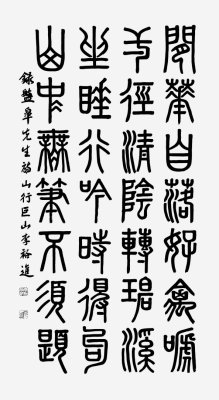 閒華自落好禽啼
午徑清陰轉碧溪
坐睡行吟時得句
山中無筆不須題
錄盤皐先生 山行 巨山李裕進